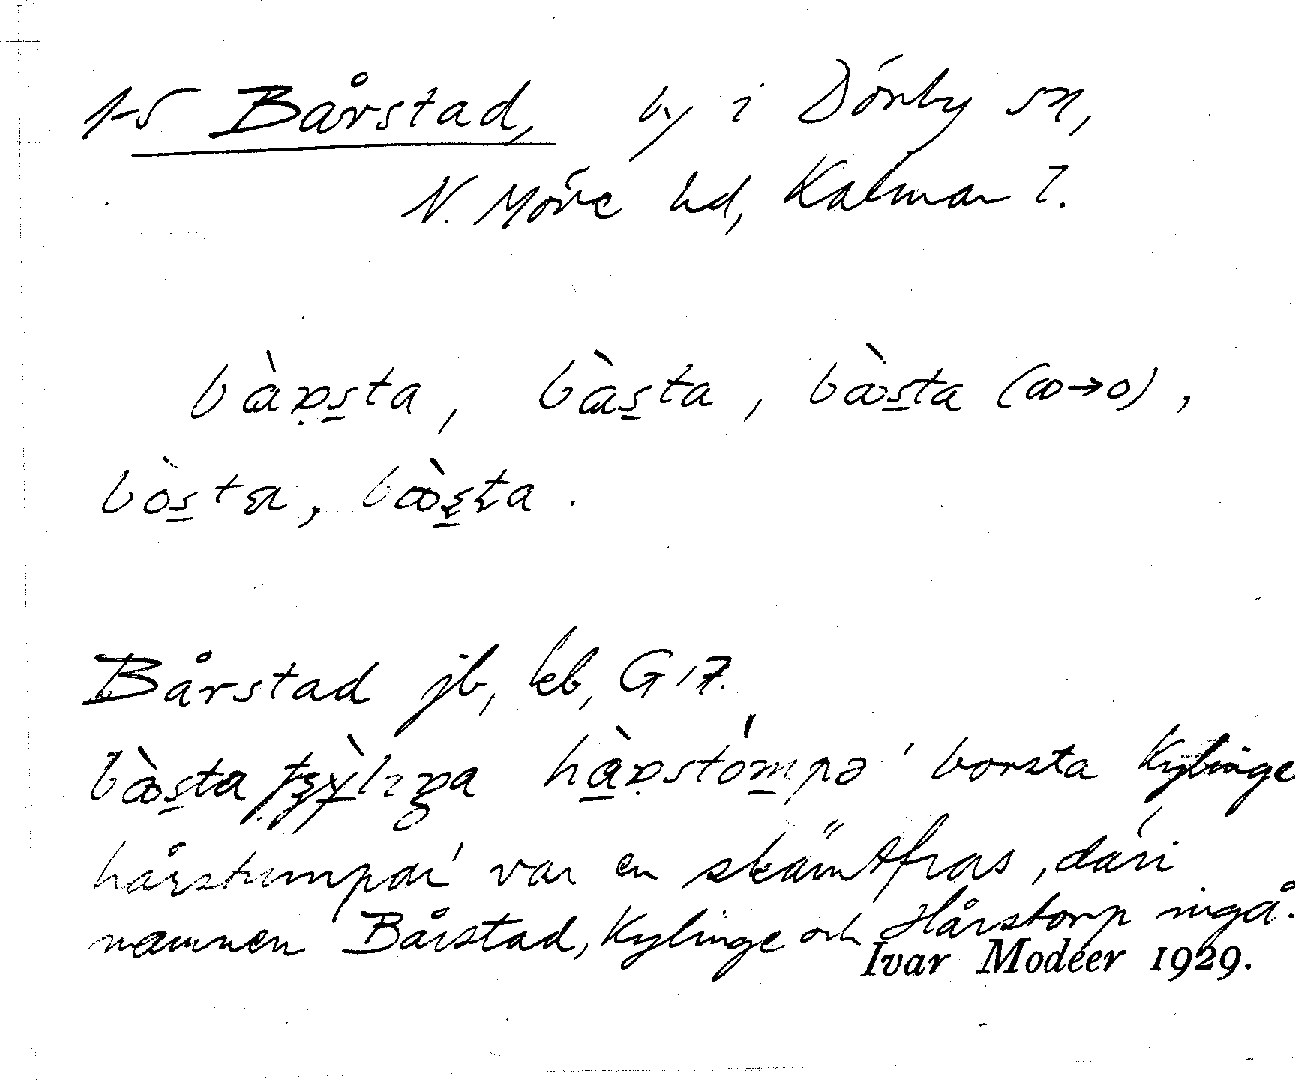 1-5 Bårstad, by i Dörby sn,
N. Möre hd, Kalmar l.
bàrs̱ta, bàs̱ta, bòs̱ta (ꝏ→o),
bòs̱ta, bꝏ̀s̱ta.
Bårstad jb, kb, G 17.
bꝏ̀s̱ta hàrstómpə 'borsta Kylinge
hårstumpar' var en skämtfras, däri
namnen Bårstad, Kylinge och Hårstorp ingå.
Ivar Modéer 1929.